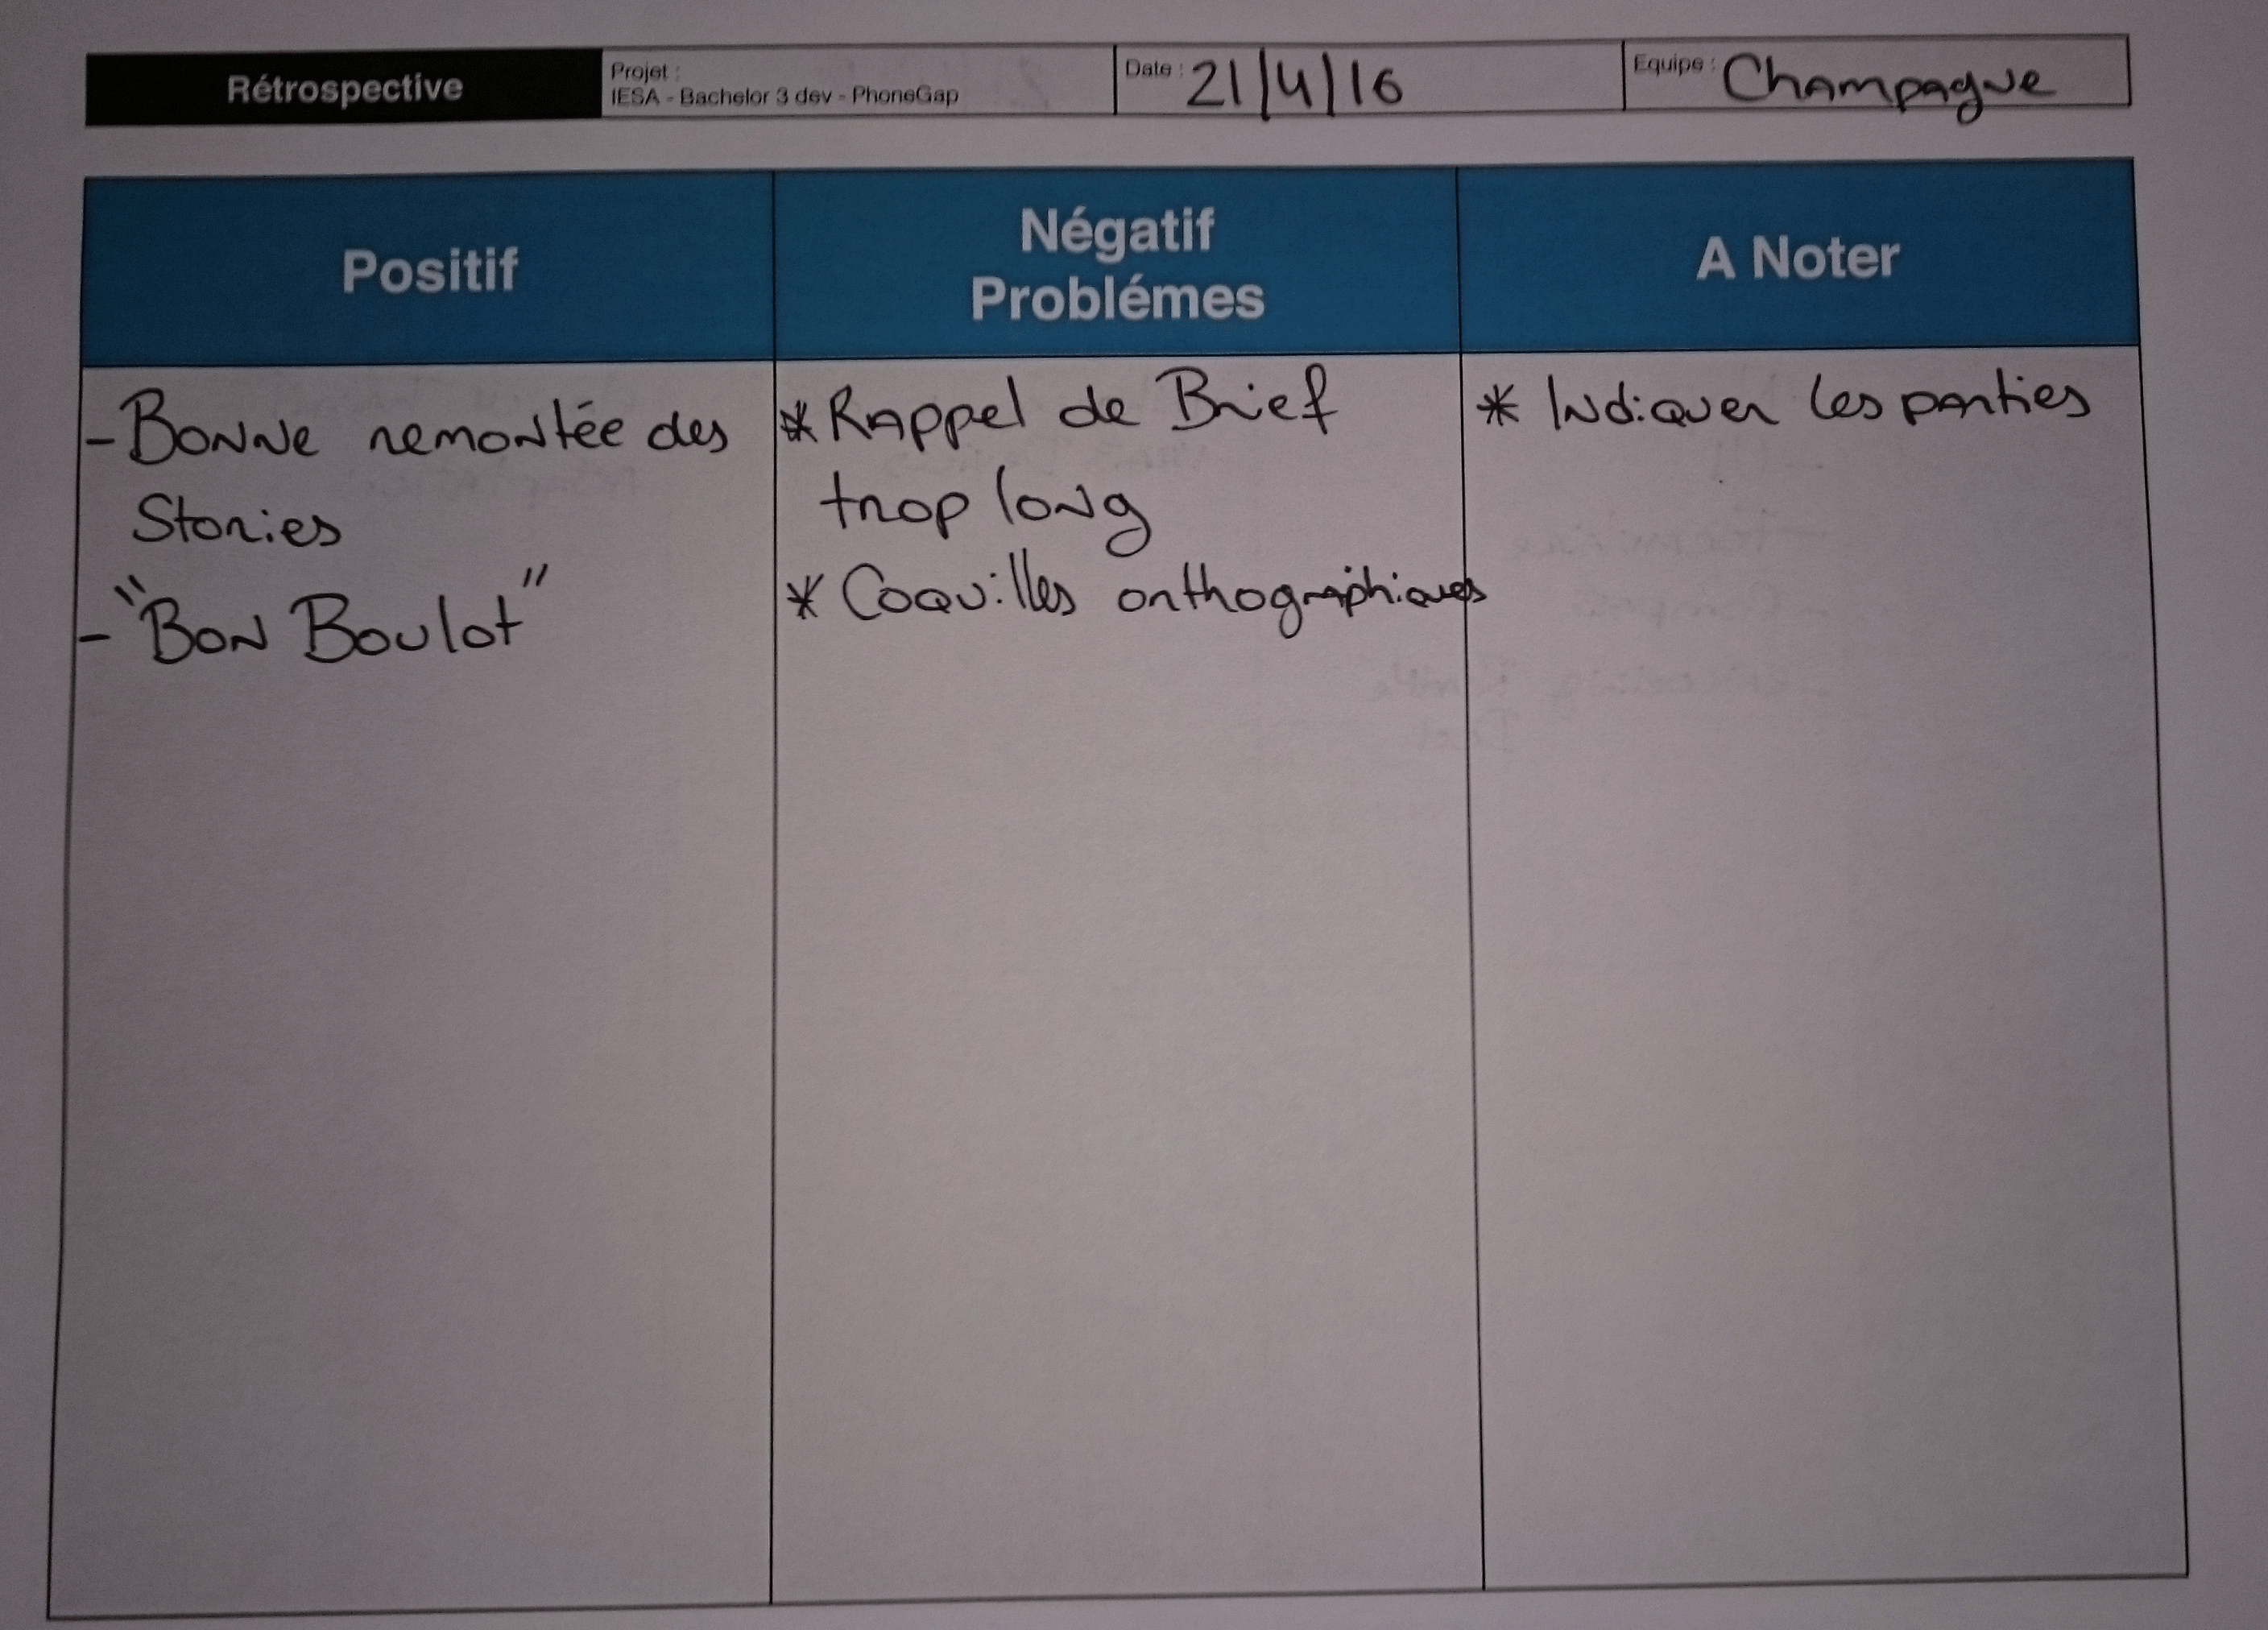 Rétrospective
Projet :
IESA - Bachelor 3 dev - PhoneGap
Date : 21/4/16
Equipe : Champagne
Positif
Négatif
Problémes
A Noter
- Bonne remontée des
Stories
- "Bon Boulot"
* Rappel de Brief
trop long
* Coquilles orthographiques
* Indiquer les parties